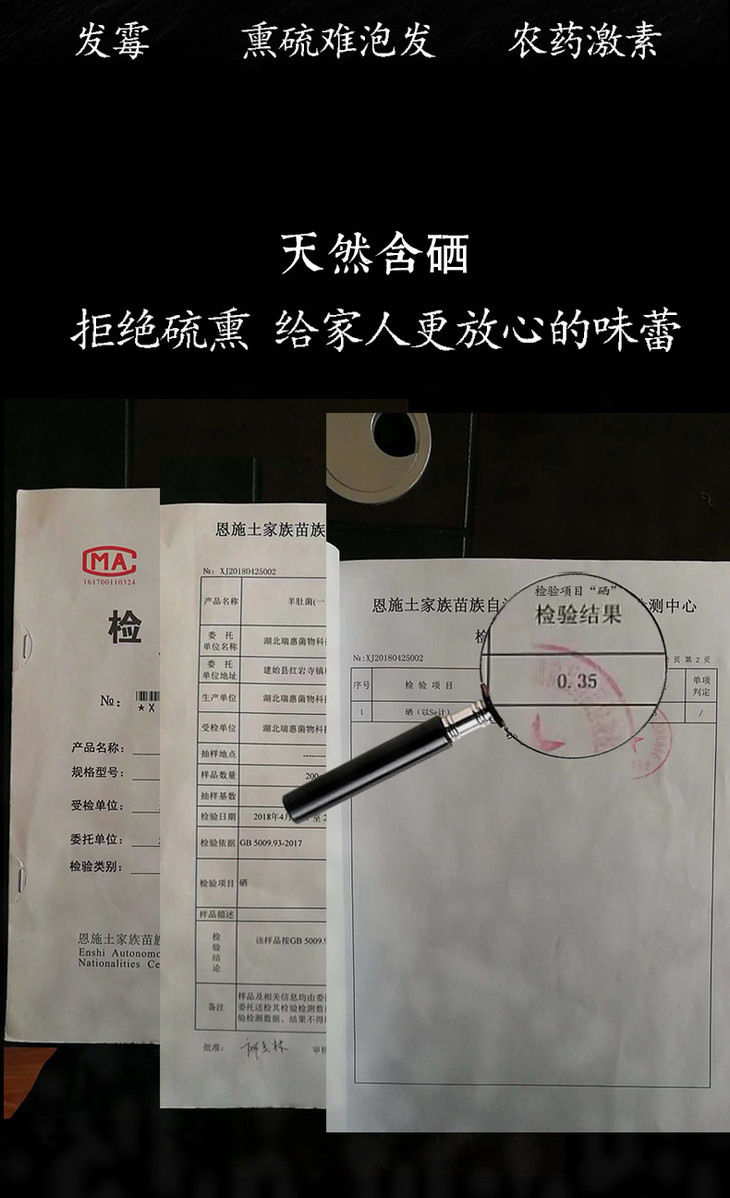 发霉 熏硫难泡发 农药激素
天然含硒
拒绝硫熏 给家人更放心的味蕾
MA
161700110324
检
№:
*X
产品名称:
规格型号:
受检单位:
委托单位:
检验类别:
恩施土家族苗族
Enshi Autonomo
Nationalities Ce
恩施土家族苗族
№: XJ20180425002
产品名称 羊肚菌(一
委托单位名称 湖北瑞惠菌物科
委托单位地址 建始县红岩寺镇
生产单位 湖北瑞惠菌物科
受检单位 湖北瑞惠菌物科
抽样地点 -------
样品数量 200
抽样基数
检验日期 2018年4月 至 2
检验依据 GB 5009.93-2017
检验项目 硒
样品描述
检验结论 该样品按GB 5009.9
备注 样品及相关信息均由委
委托送检其检验检测数
验检测数据、结果不得
批准: 审
恩施土家族苗族自 测中心
检
№:XJ20180425002 页 第 2 页
序号 检验项目 单项判定
1 硒(以Se计) /
检验项目“硒”
检验结果
0.35